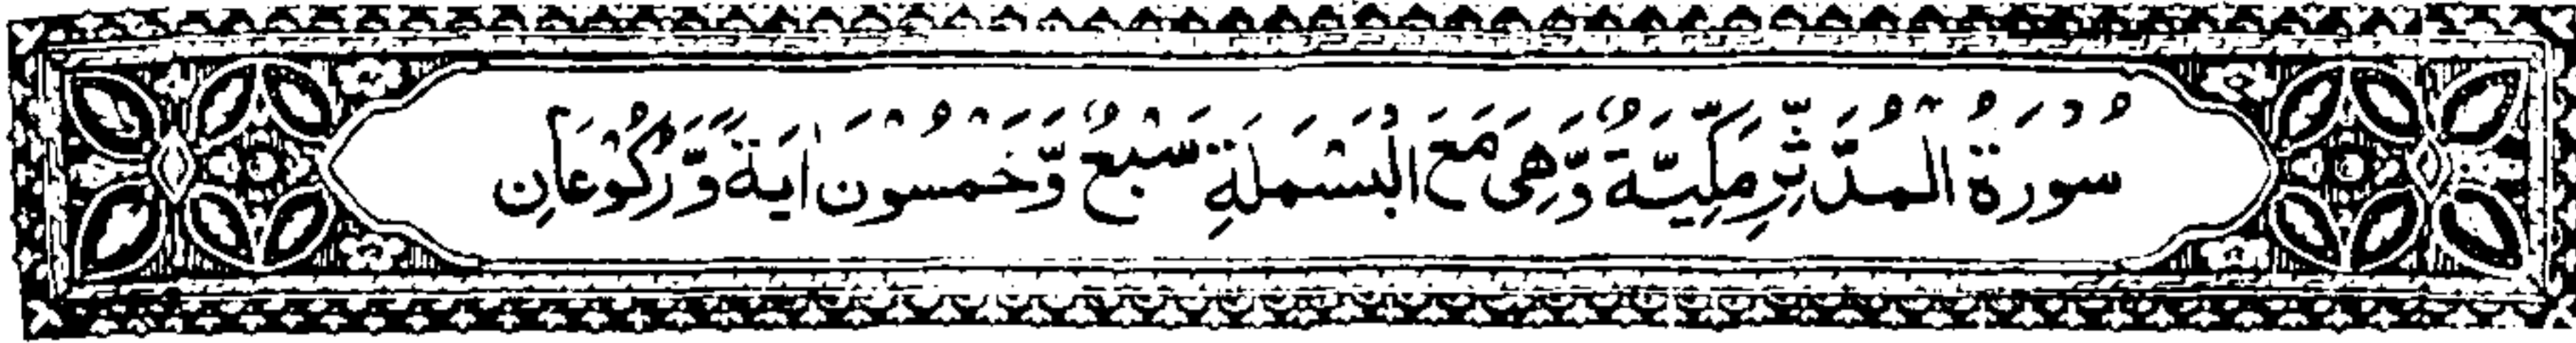 سُوْرَةُ الْمُدَّثِّرِ مَكِّيَّةٌ وَّهِىَ مَعَ الْبَسْمَلَةِ سَبْعٌ وَّخَمْسُوْنَ اٰيَةً وَّرُكُوْعَانِ